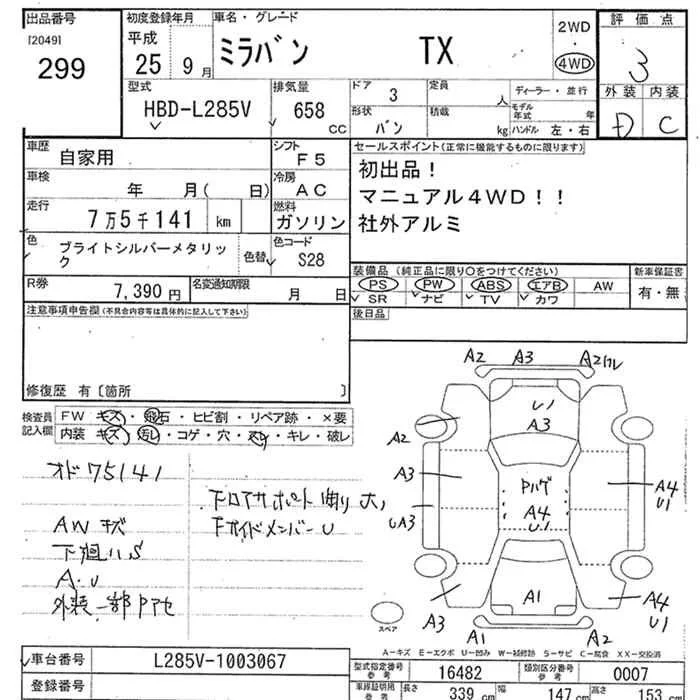 出品番号 初度登録年月 車名・グレード 評価点
[2049] 平成 ミラバン TX 2WD
299 25年 9月 4WD 3
型式 排気量 ドア 3 定員 人 ディーラー・並行 外装 内装
HBD-L285V 658 CC 形状 バン 積載 kg モデル年式 年 D C
ハンドル 左・右
車歴 自家用 シフト F5 セールスポイント(正常に機能するものに限ります)
車検 年 月( 日) 冷房 AC 初出品!
マニュアル4WD!!
走行 7万5千141 km 燃料 ガソリン 社外アルミ
色 ブライトシルバーメタリック 色替 色コード S28
装備品(純正品に限り○をつけてください) 新車保証書
R券 7,390円 名変通知期限 月 日 PS PW ABS エアB AW 有・無
SR ナビ TV カワ
注意事項申告欄(不具合内容等は具体的に記入して下さい) 後日品
修復歴 有〔箇所 〕
検査員 FW キズ・飛石・ヒビ割・リペア跡・×要
記入欄 内装 キズ・汚レ・コゲ・穴・スレ・キレ・破レ
オド75141
AWキズ
下廻りS
A.U
外装一部Pアセ
Fロアサポート曲り大
FガイドメンバーU
A2 A3 A2
U1
A3
A2
A3 Pハゲ A4
A4 U1
UA3 U1
A3 A1 A4
U1
A1 A2
スペア
A-キズ E-エクボ U-凹み W-補修跡 S-サビ C-腐食 XX-交換済
車台番号 L285V-1003067 型式指定番号 参考 16482 類別区分番号 参考 0007
登録番号 車庫証明用 参考 長さ 339 cm 幅 147 cm 高さ 153 cm